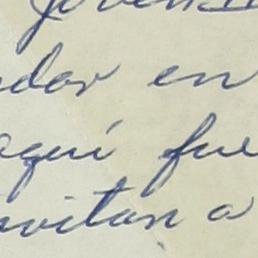 dor en
aquí fue
nvitan a